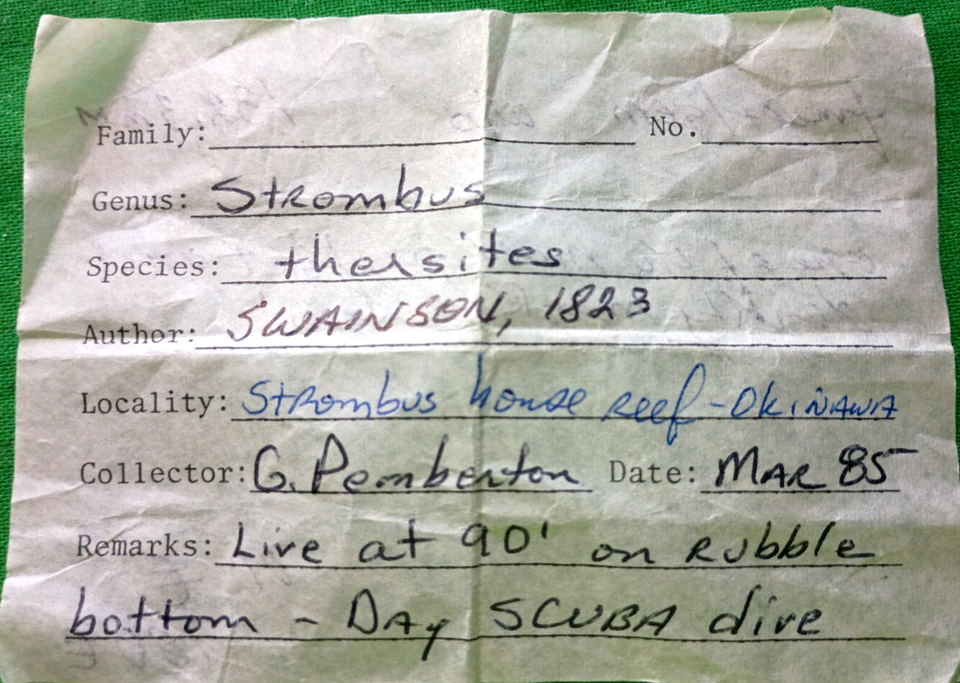 Family: No.
Genus: Strombus
Species: thersites
Author: SWAINSON, 1823
Locality: Strombus house reef - Okinawa
Collector: G. Pemberton Date: Mar 85
Remarks: Live at 90' on rubble
bottom - Day SCUBA dive